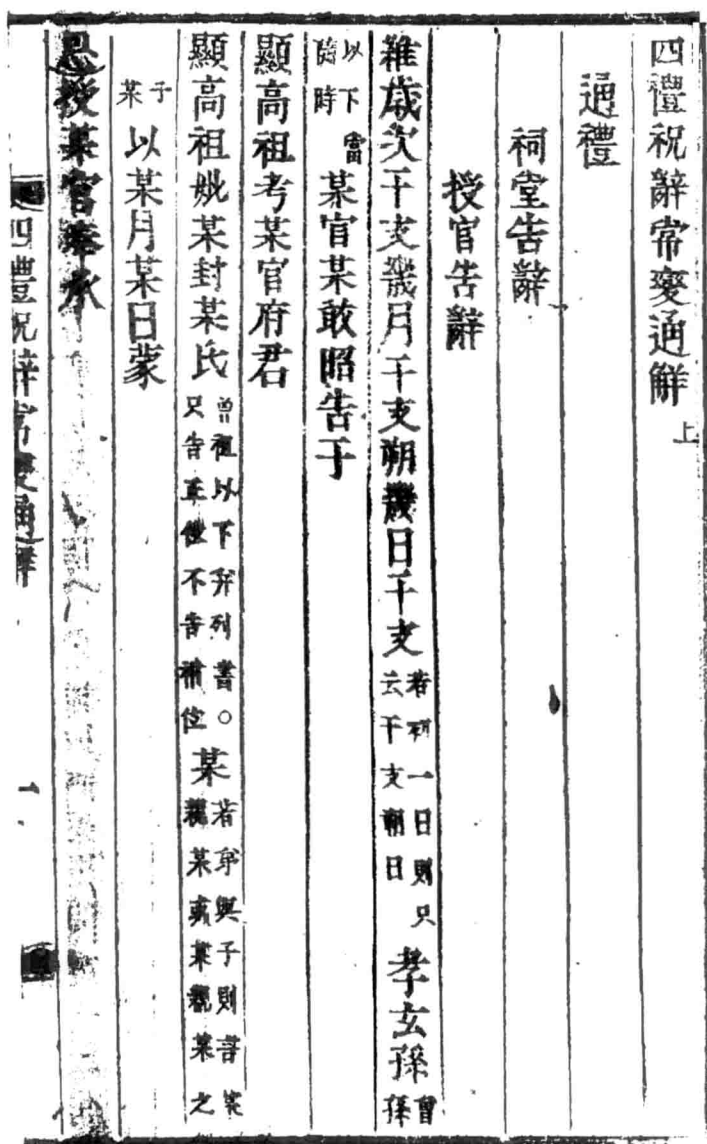 四禮祝辭常變通解 上
通禮
祠堂告辭
授官告辭
維歲次干支幾月干支朔幾日干支 若初一日則只云干支朔日 孝玄孫 曾孫
以下隨時 某官某敢昭告于
顯高祖考某官府君
顯高祖妣某封某氏 曾祖以下弁列書○只告正位不告祔位 某 若弟與子則言某親某或某親某之
子某 以某月某日蒙
恩授某官奉承
四禮祝辭常變通解